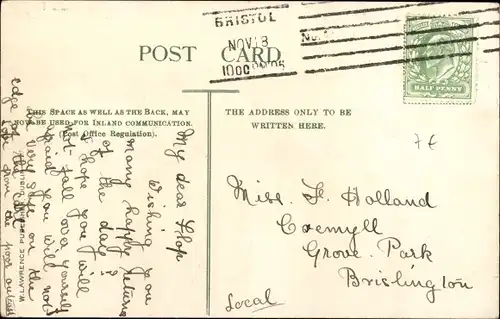 BRISTOL
NOV 8
POST CARD
HALF PENNY
THIS SPACE AS WELL AS THE BACK, MAY
NOW BE USED FOR INLAND COMMUNICATION.
(Post Office Regulation).
THE ADDRESS ONLY TO BE
WRITTEN HERE.
7£
My dear
Wishing you
many happy returns
of the day?
I hope you will
not fall over yourself
you will not
very safe on the
edge of the
from the poor
W. LAWRENCE PUBLISHER, DUBLIN
Miss F. Holland
Cremyll
Grove Park
Brislington
Local